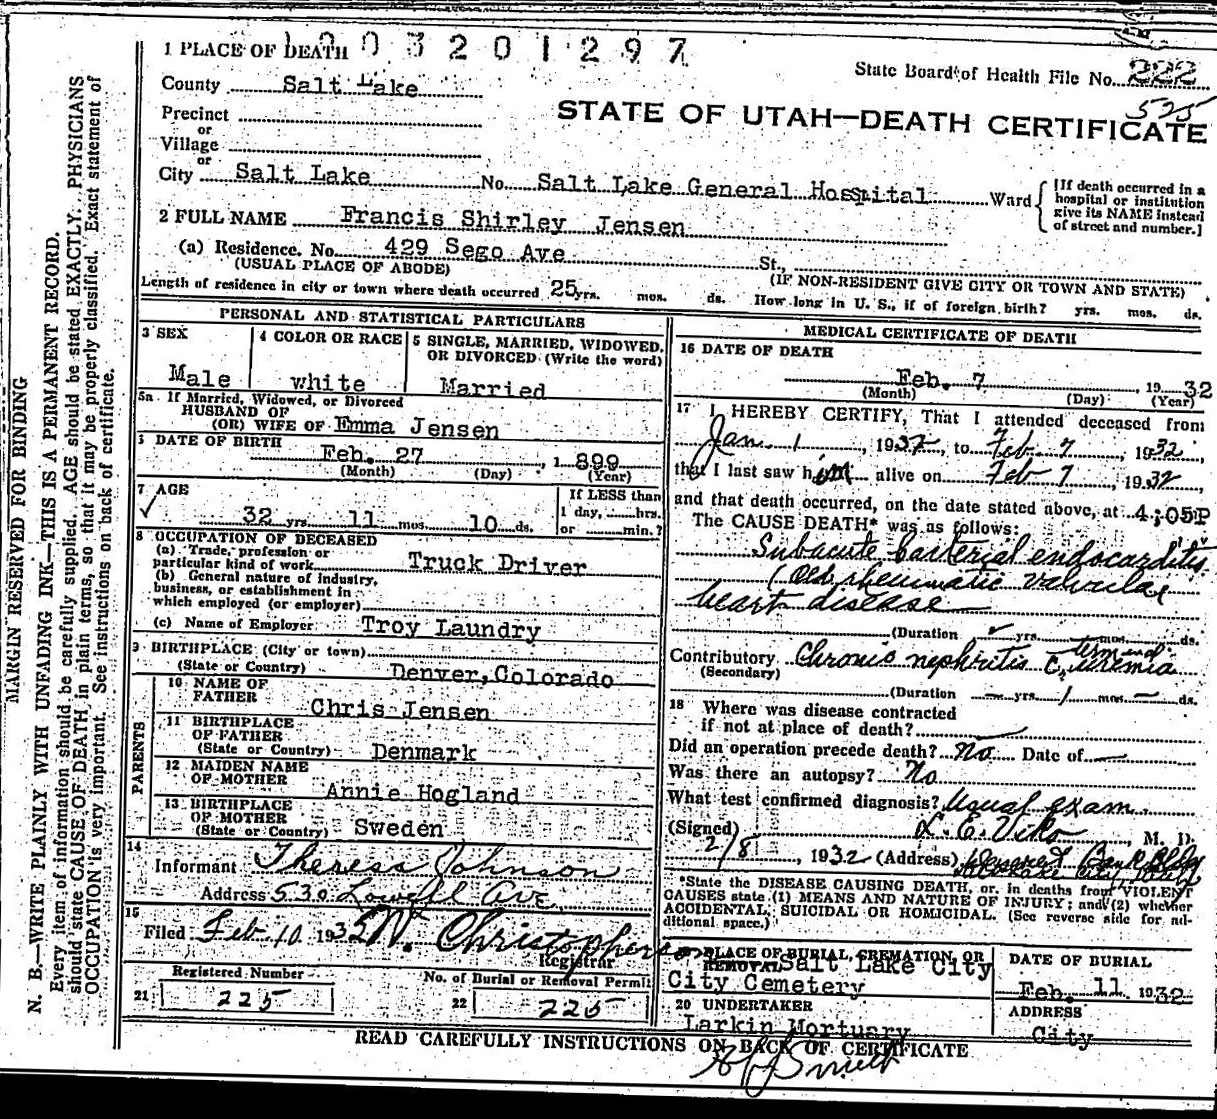 1003201297
1 PLACE OF DEATH
State Board of Health File No. 222
525
County Salt Lake
STATE OF UTAH—DEATH CERTIFICATE
Precinct
or
Village
or
City Salt Lake No. Salt Lake General Hospital Ward
[If death occurred in a
hospital or institution
give its NAME instead
of street and number.]
2 FULL NAME Francis Shirley Jensen
(a) Residence. No. 429 Sego Ave St.,
(USUAL PLACE OF ABODE) (IF NON-RESIDENT GIVE CITY OR TOWN AND STATE)
Length of residence in city or town where death occurred 25 yrs. mos. ds. How long in U. S., if of foreign birth? yrs. mos. ds.
PERSONAL AND STATISTICAL PARTICULARS
3 SEX
Male
4 COLOR OR RACE
white
5 SINGLE, MARRIED, WIDOWED,
OR DIVORCED (Write the word)
Married
5a If Married, Widowed, or Divorced
HUSBAND OF
(OR) WIFE OF Emma Jensen
DATE OF BIRTH
Feb. 27, 1899
(Month) (Day) (Year)
7 AGE
32 yrs 11 mos. 10 ds.
If LESS than
1 day, hrs.
or min.?
8 OCCUPATION OF DECEASED
(a) Trade, profession or
particular kind of work Truck Driver
(b) General nature of industry,
business, or establishment in
which employed (or employer)
(c) Name of Employer Troy Laundry
9 BIRTHPLACE (City or town)
(State or Country) Denver, Colorado
PARENTS
10 NAME OF
FATHER Chris Jensen
11 BIRTHPLACE
OF FATHER
(State or Country) Denmark
12 MAIDEN NAME
OF MOTHER Annie Hogland
13 BIRTHPLACE
OF MOTHER
(State or Country) Sweden
14
Informant Theresa Johnson
Address 530 Lowell Ave
15
Filed Feb 10 1932 N. Christopherson
Registrar
Registered Number
21 225
No. of Burial or Removal Permit
22 225
MEDICAL CERTIFICATE OF DEATH
16 DATE OF DEATH
Feb. 7 1932
(Month) (Day) (Year)
17 I HEREBY CERTIFY, That I attended deceased from
Jan 1, 1932, to Feb 7, 1932,
that I last saw him alive on Feb 7, 1932,
and that death occurred, on the date stated above, at 4;05P
The CAUSE DEATH* was as follows:
Subacute bacterial endocarditis
(Old rheumatic valvular
heart disease
(Duration yrs. mos. ds.
Contributory Chronic nephritis c terminal uremia
(Secondary)
(Duration — yrs. 1 mos. — ds.
18 Where was disease contracted
if not at place of death?
Did an operation precede death? No Date of —
Was there an autopsy? No
What test confirmed diagnosis? Usual exam.
(Signed) L. E. Viko, M. D.
2/8, 1932 (Address) Deseret Bank Bldg
Salt Lake City, Utah
*State the DISEASE CAUSING DEATH, or, in deaths from VIOLENT
CAUSES state (1) MEANS AND NATURE OF INJURY; and (2) whether
ACCIDENTAL, SUICIDAL OR HOMICIDAL. (See reverse side for ad-
ditional space.)
PLACE OF BURIAL, CREMATION, OR
REMOVAL Salt Lake City
City Cemetery
DATE OF BURIAL
Feb. 11. 1932
20 UNDERTAKER
Larkin Mortuary
ADDRESS
City
READ CAREFULLY INSTRUCTIONS ON BACK OF CERTIFICATE
Smith
MARGIN RESERVED FOR BINDING
N. B.—WRITE PLAINLY WITH UNFADING INK—THIS IS A PERMANENT RECORD.
Every item of information should be carefully supplied. AGE should be stated EXACTLY. PHYSICIANS
should state CAUSE OF DEATH in plain terms, so that it may be properly classified. Exact statement of
OCCUPATION is very important. See instructions on back of certificate.